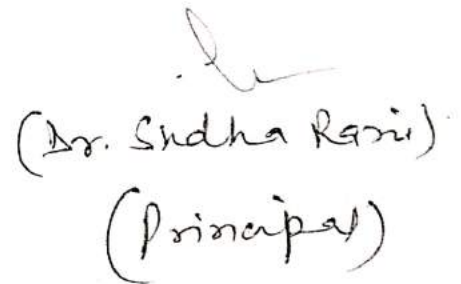 (Dr. Sudha Rani)
(Principal)